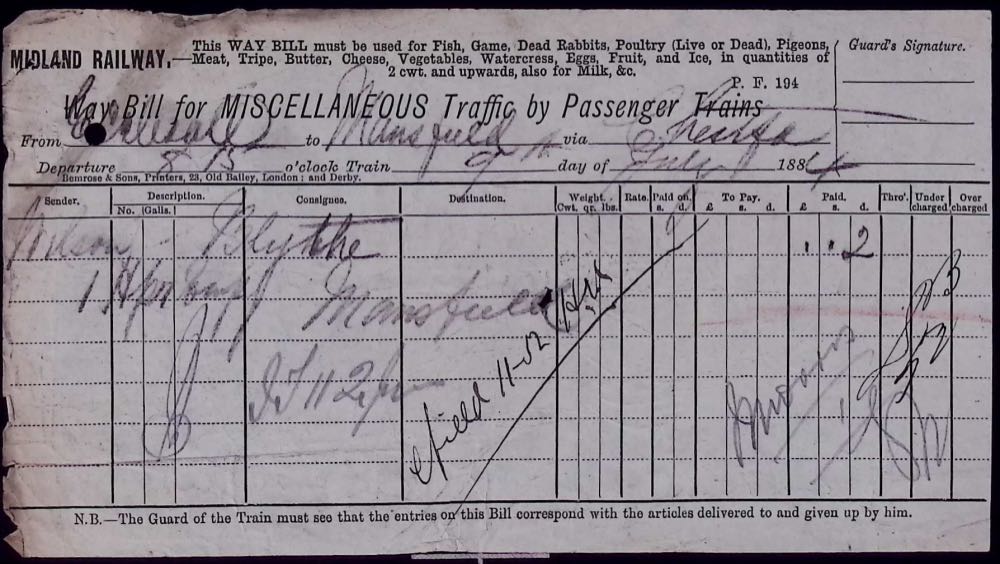 MIDLAND RAILWAY,—This WAY BILL must be used for Fish, Game, Dead Rabbits, Poultry (Live or Dead), Pigeons,
Meat, Tripe, Butter, Cheese, Vegetables, Watercress, Eggs, Fruit, and Ice, in quantities of
2 cwt. and upwards, also for Milk, &c.
Guard's Signature.
P. F. 194
Way Bill for MISCELLANEOUS Traffic by Passenger Trains
From to Mansfield via
Departure 8 15 o'clock Train 9 day of July 1884
Bemrose & Sons, Printers, 23, Old Bailey, London; and Derby.
Sender. Description. Consignee. Destination. Weight. Rate. Paid on. To Pay. Paid. Thro'. Under charged Over charged
No. Galls. Cwt. qr. lbs. s. d. £ s. d. £ s. d.
Wilson Blythe 2
1 Mansfield
11-52
N.B.—The Guard of the Train must see that the entries on this Bill correspond with the articles delivered to and given up by him.